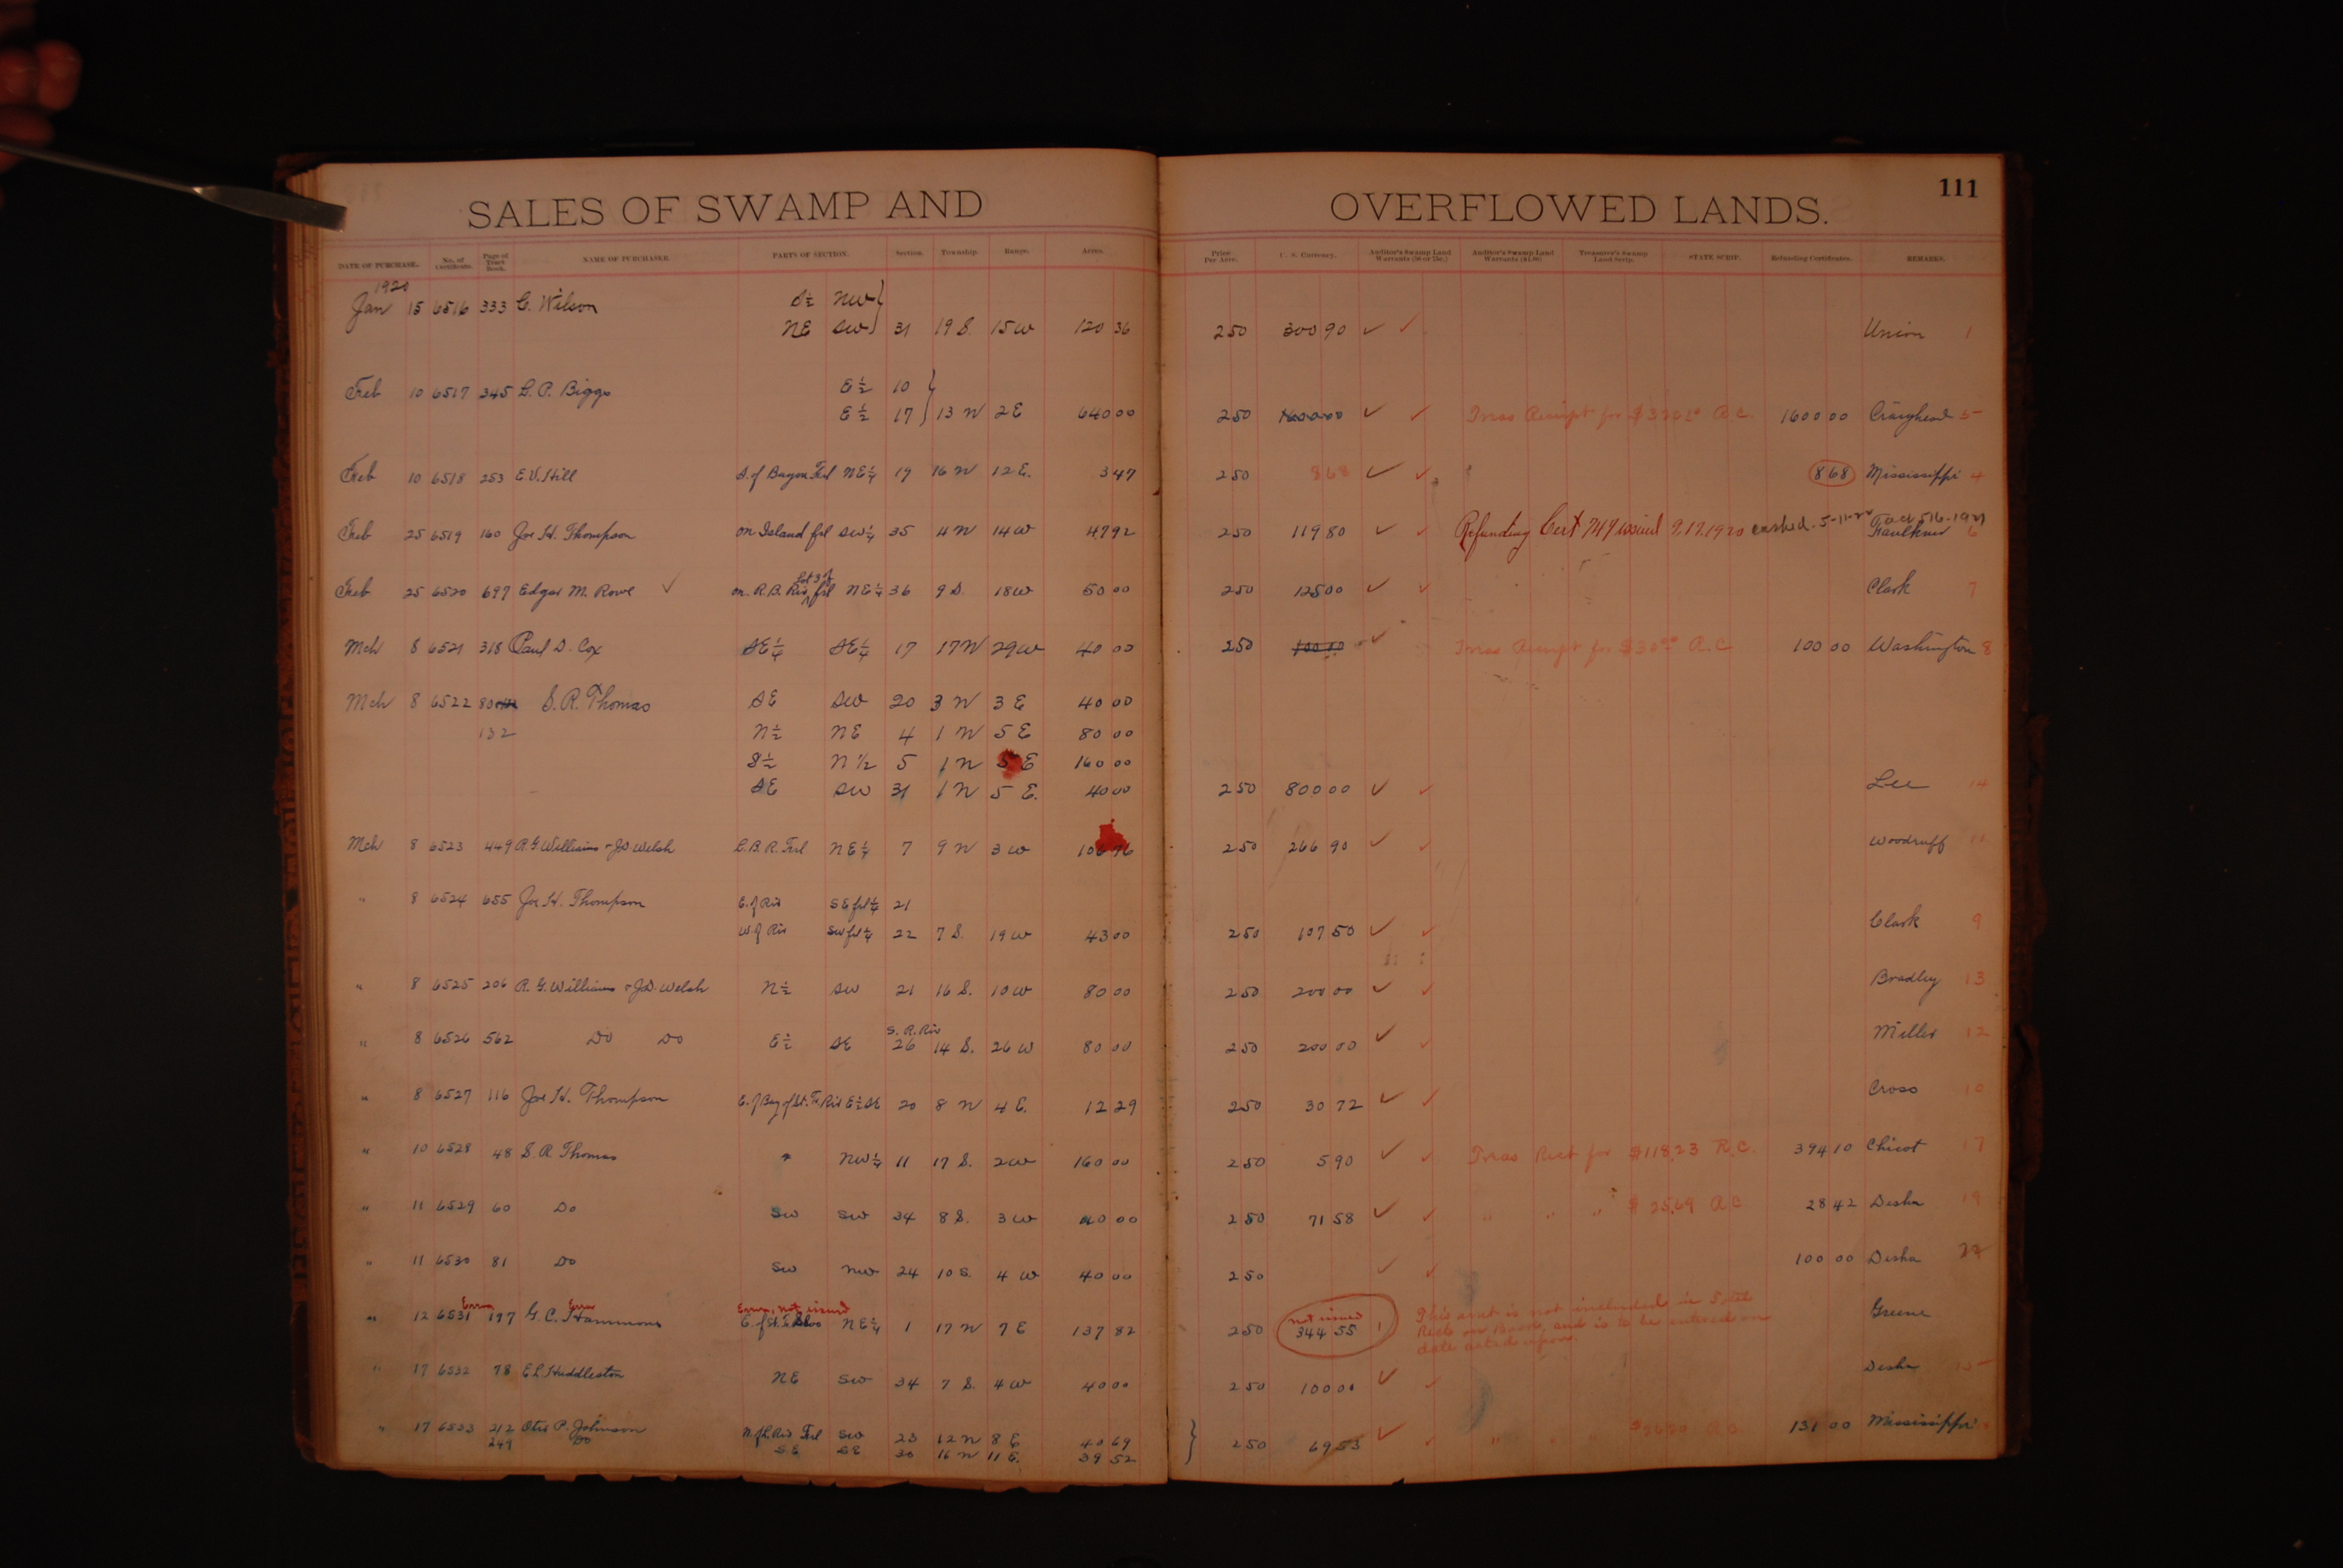 SALES OF SWAMP AND OVERFLOWED LANDS. 111
DATE OF PURCHASE. No. of Certificate. Page of Tract Book. NAME OF PURCHASER. PARTS OF SECTION. Section. Township. Range. Acres. Price Per Acre. U. S. Currency. Auditor's Swamp Land Warrants (50 or 75c.) Auditor's Swamp Land Warrants ($1.00) Treasurer's Swamp Land Scrip. STATE SCRIP. Refunding Certificates. REMARKS.
1920
Jan 15 6516 333 C. Wilson S½ NW
NE SW 31 19 S. 15 W 120 36 2 50 300 90 ✓ ✓ Union 1
Feb 10 6517 345 L. P. Biggs E½ 10
E½ 17 13 N 2 E 640 00 2 50 1600 00 ✓ ✓ Treas Receipt for $320.00 A.C. 1600 00 Craighead 5
Feb 10 6518 253 E. V. Hill S. of Bayou Frl NE¼ 19 16 N 12 E. 3 47 2 50 8 68 ✓ ✓ 8 68 Mississippi 4
Feb 25 6519 160 Joe H. Thompson on Island frl SW¼ 35 4 N 14 W 47 92 2 50 119 80 ✓ ✓ Refunding Cert 749 issued 9.17.1920 cashed. 5-11-22 Faulkner 6
Lot 3 of
Feb 25 6520 697 Edgar M. Rowe ✓ on. R. B. Riv frl NE¼ 36 9 S. 18 W 50 00 2 50 125 00 ✓ ✓ Clark 7
Mch 8 6521 318 Paul D. Cox SE¼ SE¼ 17 17 N 29 W 40 00 2 50 100 00 ✓ Treas Receipt for $30.00 A.C. 100 00 Washington 8
Mch 8 6522 80 S. R. Thomas SE SW 20 3 N 3 E 40 00
132 N½ NE 4 1 N 5 E 80 00
S½ N½ 5 1 N 5 E 160 00
SE SW 31 1 N 5 E. 40 00 2 50 800 00 ✓ ✓ Lee 14
Mch 8 6523 449 R. G. Williams & J. D. Welsh L. B. R. Frl NE¼ 7 9 N 3 W 106 76 2 50 266 90 ✓ ✓ Woodruff 11
" 8 6524 655 Joe H. Thompson E. of Riv SE frl ¼ 21
W. of Riv SW frl ¼ 22 7 S. 19 W 43 00 2 50 107 50 ✓ ✓ Clark 9
" 8 6525 206 R. G. Williams & J. D. Welsh N½ SW 21 16 S. 10 W 80 00 2 50 200 00 ✓ ✓ Bradley 13
S. R. Riv
" 8 6526 562 Do Do E½ SE 26 14 S. 26 W 80 00 2 50 200 00 ✓ ✓ Miller 12
" 8 6527 116 Joe H. Thompson E. of Bay of St. Fr. Riv E½ SE 20 8 N 4 E. 12 29 2 50 30 72 ✓ ✓ Cross 10
" 10 6528 48 S. R. Thomas NW¼ 11 17 S. 2 W 160 00 2 50 5 90 ✓ ✓ Treas Rect for $118.23 R.C. 394 10 Chicot 17
" 11 6529 60 Do SW SW 34 8 S. 3 W 40 00 2 50 71 58 ✓ ✓ " " " $25.69 A C 28 42 Desha 19
" 11 6530 81 Do SW NW 24 10 S. 4 W 40 00 2 50 ✓ ✓ 100 00 Desha
Error Error Error, not issued not issued
" 12 6531 197 G. C. Hammons E. of St. F. NE¼ 1 17 N 7 E 137 82 2 50 344 55 Greene
This amt is not included in Total
Rects on Book, and is to be entered on
date acted upon.
" 17 6532 78 E L Huddleston NE SW 34 7 S. 4 W 40 00 2 50 100 00 ✓ ✓ Desha 15
" 17 6533 212 Otis P. Johnson N. of L. Riv Frl SW 23 12 N 8 E 40 69 2 50 69 53 ✓ ✓ " 131 00 Mississippi
249 Do SE SE 30 16 N 11 E. 39 52